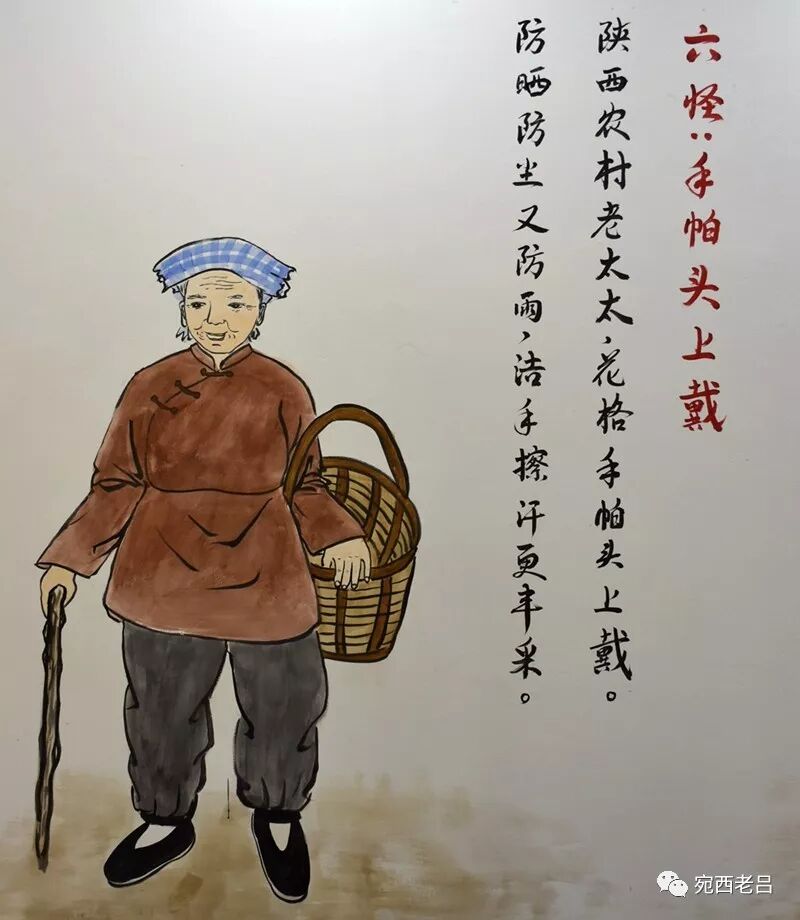 六怪:手帕头上戴
陕西农村老太太,花格手帕头上戴。
防晒防尘又防雨,洁手擦汗更丰采。
宛西老吕